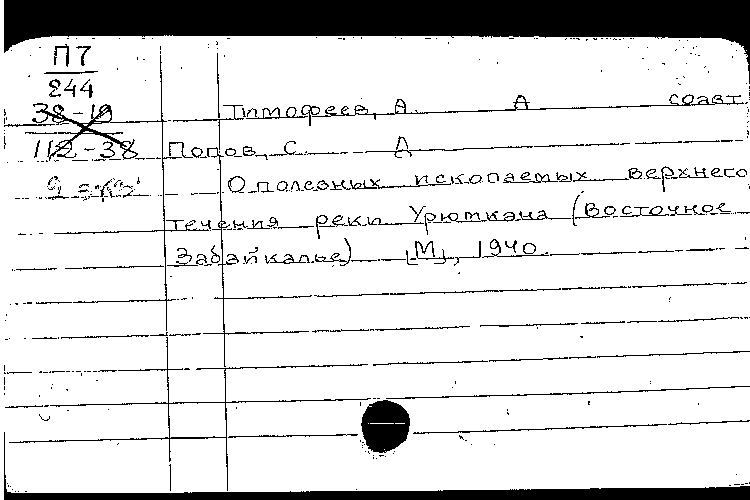 П7
244
38-19
Тимофеев, А. А соавт
112-38
Попов, С. Д
2 экз
О полезных ископаемых верхнего
течения реки Урюмкана (Восточное
Забайкалье) [М], 1940.